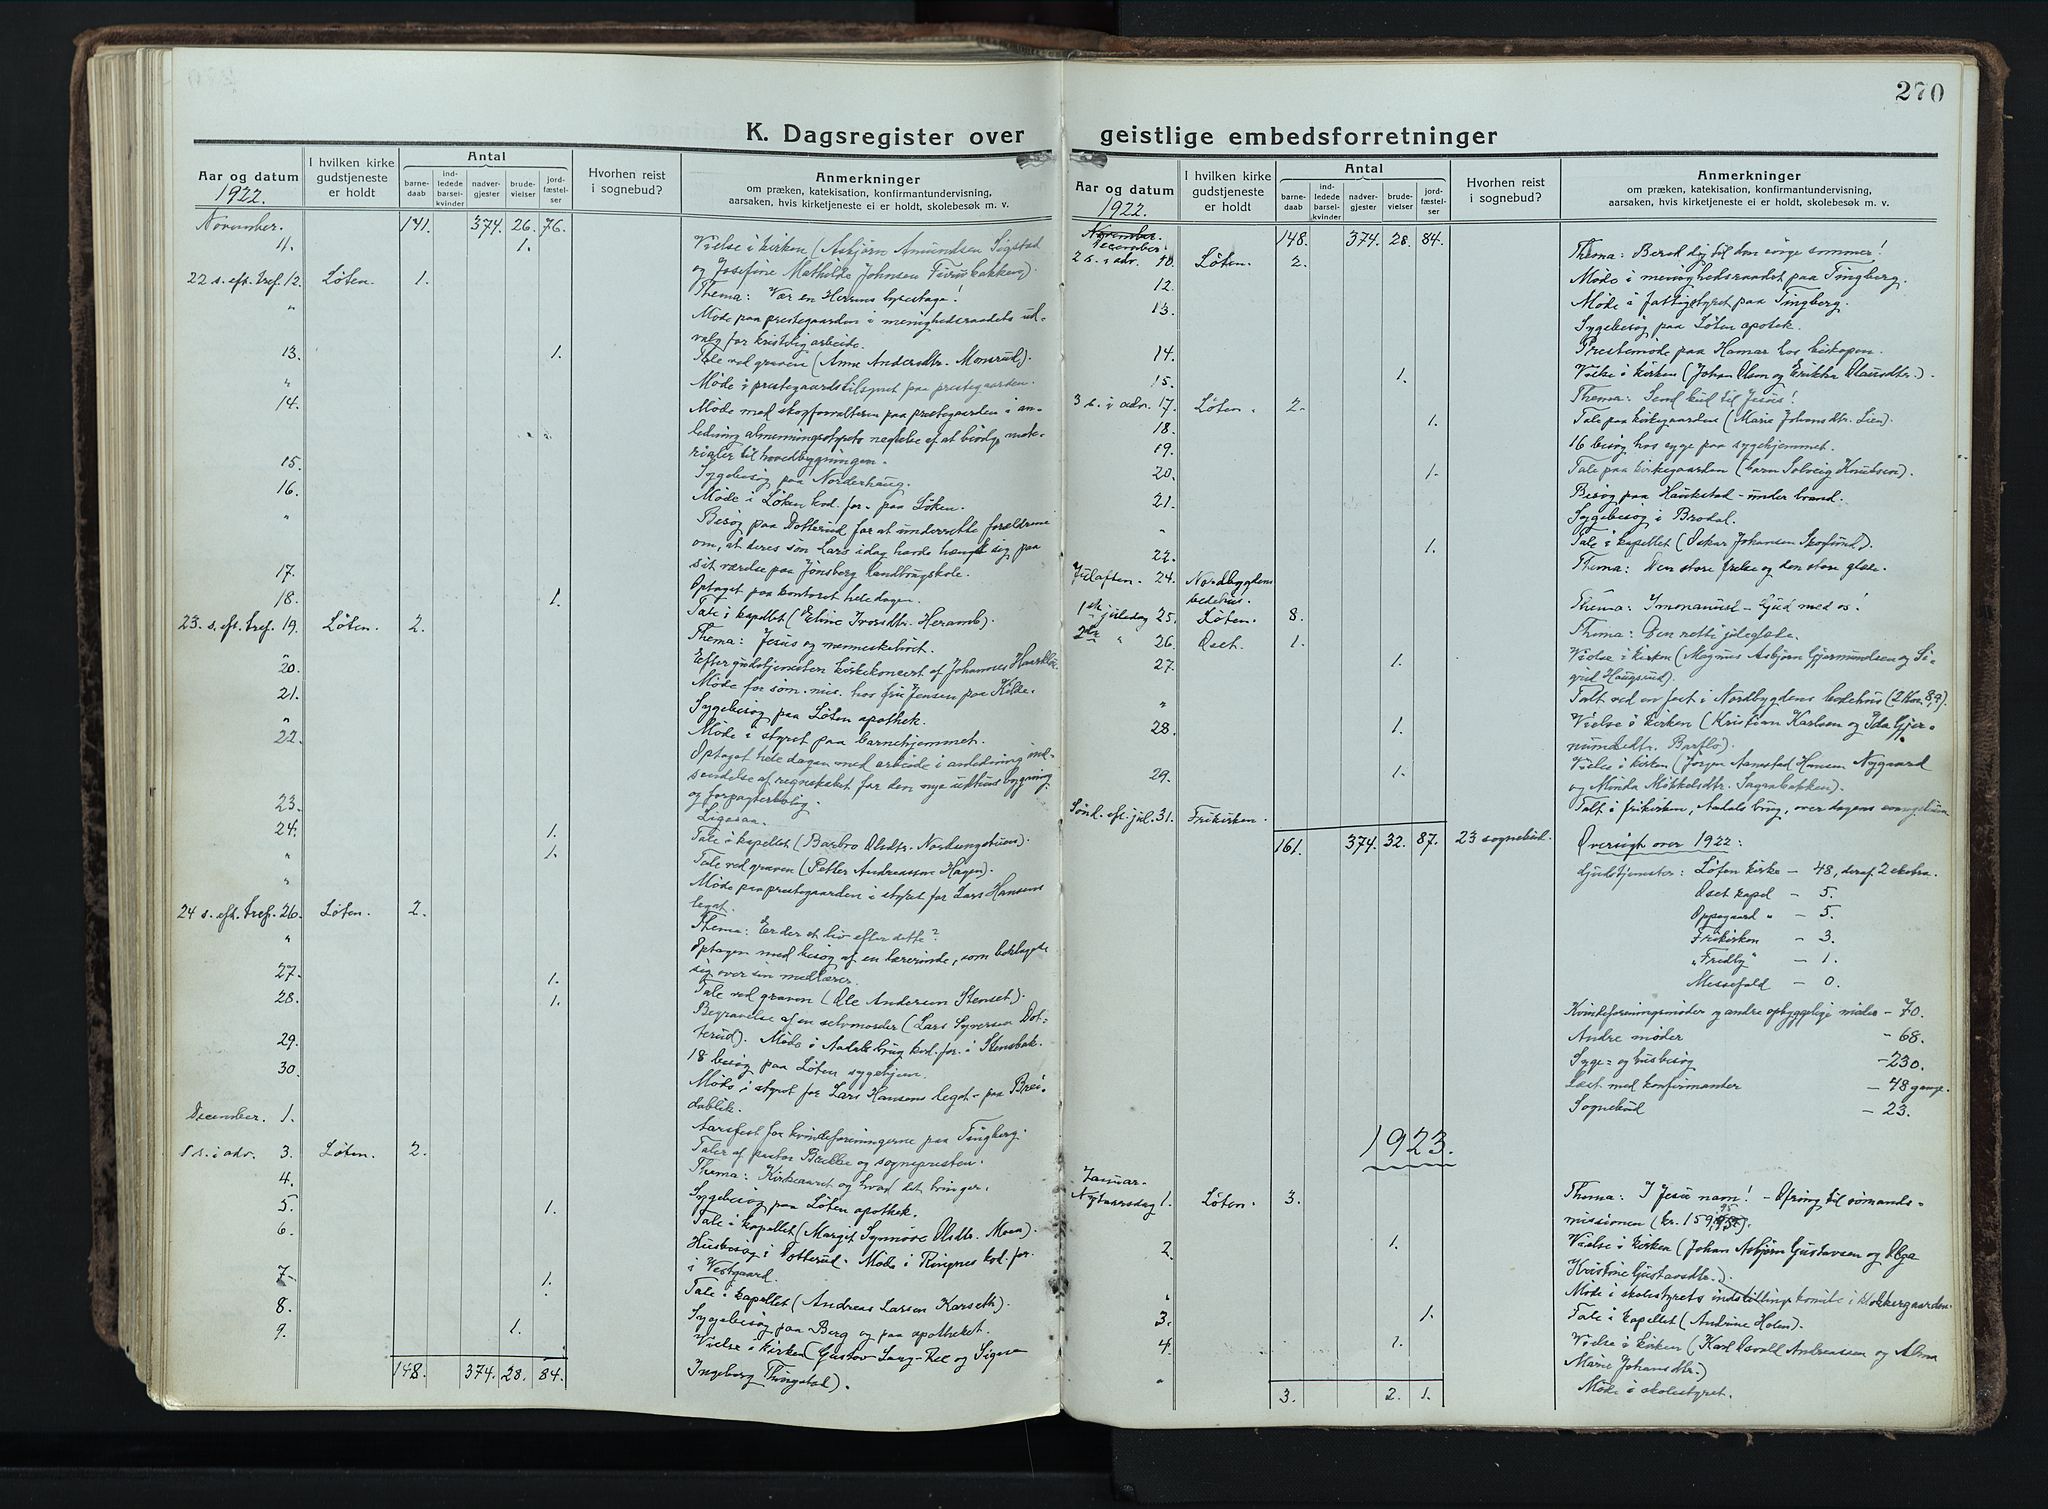 270
K. Dagsregister over geistlige embedsforretninger
Aar og datum
1922.
I hvilken kirke gudstjeneste er holdt
Antal
barne-daab
ind-ledede barsel-kvinder
nadver-gjester
brude-vielser
jord-fæstel-ser
Hvorhen reist i sognebud?
Anmerkninger
om præken, katekisation, konfirmantundervisning,
aarsaken, hvis kirketjeneste ei er holdt, skolebesøk m. v.
November. 141. 374. 26. 76.
11. 1. Vielse i kirken (Asbjørn Amundsen Sigstad
og Josefine Mathilde Johnsen Furubakken).
22 s. eft. tref. 12. Løten. 1. Thema: Vær en Herrens lysestage!
" Møde paa prestegaarden i menighedsraadets ud-
valg for kristelig arbeide.
13. 1. Tale ved graven (Anne Andersdtr. Monsrud).
" Møde i prestegaardstilsynet paa prestegaarden.
14. Møde med skogforvalteren paa prestegaarden i an-
ledning almenningsstyrets negtelse af at bevilge mate-
rialer til hovedbygningen.
15. Sygebesøg paa Norderhaug.
16. Møde i Løken kvd. for. paa Løken.
" Besøg paa Dotterud for at underrette forældrene
om, at deres søn Lars idag havde hængt sig paa
sit værelse paa Jønsberg landbrugskole.
17. Optaget paa kontoret hele dagen.
18. 1. Tale i kapellet (Eline Iversdtr. Heramb).
23. s. eft. tref. 19. Løten. 2. Thema: Jesus og menneskelivet.
" Efter gudstjenesten kirkekoncert af Johannes Haarklou.
20. Møde for søm. mis. hos fru Jensen paa Kilde.
21. Sygebesøg paa Løten apothek.
" Møde i styret paa barnehjemmet.
22. Optaget hele dagen med arbeide i anledning ind-
sendelse af regnskabet for den nye uthusbygning
og forpagterbolig.
23. Ligesaa.
24. 1. Tale i kapellet (Barbro Olsdtr. Nordsengstuen).
" 1. Tale ved graven (Petter Andreassen Hagen).
" Møde paa prestegaarden i styret for Lars Hansens
legat.
24 s. eft. tref. 26. Løten. 2. Thema: Er der et liv efter dette?
" Optagen med besøg af en lærerinde, som beklagede
sig over sin medlærer.
27. 1. Tale ved graven (Ole Andersen Stenset).
28. 1. Begravelse af en selvmorder (Lars Syversen Dot-
terud). Møde i Aadals brug kvd. for. i Stensbak.
29. 18 besøg paa Løten sygehjem.
30. Møde i styret for Lars Hansens legat - paa Brei-
dablik.
December. 1. Aarsfest for kvindeforeningerne paa Tingberg.
Taler af pastor Bække og sognepresten.
1 s. i adv. 3. Løten. 2. Thema: Kirkeaaret og hvad det bringer.
4. Sygebesøg paa Løten apothek.
5. 1. Tale i kapellet (Margit Synnøve Olsdtr. Moen).
6. Husbesøg i Dotterud. Møde i Ringnes kvd. for.
i Vestgaard.
7. 1. Tale i kapellet (Andreas Larsen Karseth).
8. Sygebesøg paa Berg og paa apotheket.
9. 1. Vielse i kirken (Gustav Lang-Ree og Signe
Ingeborg Tingstad).
148. 374. 28. 84.
Aar og datum
1922.
I hvilken kirke gudstjeneste er holdt
Antal
barne-daab
ind-ledede barsel-kvinder
nadver-gjester
brude-vielser
jord-fæstel-ser
Hvorhen reist i sognebud?
Anmerkninger
om præken, katekisation, konfirmantundervisning,
aarsaken, hvis kirketjeneste ei er holdt, skolebesøk m. v.
November.
December. 148. 374. 28. 84.
2 s. i adv. 10. Løten. 2. Thema: Bered dig til den evige sommer!
12. Møde i menighedsraadet paa Tingberg.
13. Møde i fattigstyret paa Tingberg.
Sygebesøg paa Løten apotek.
14. Prestemøde paa Hamar hos biskopen.
15. 1. Vielse i kirken (Johan Olsen og Erikka Olausdtr.).
3 s. i adv. 17. Løten. 2. Thema: Send bud til Jesus!
18. 1. Tale paa kirkegaarden (Marie Johansdtr. Lien).
19. 16 besøg hos syge paa sygehjemmet.
20. 1. Tale paa kirkegaarden (barn Solveig Knudsen).
21. Besøg paa Haukstad - under brand.
" Sygebesøg i Brodal.
22. 1. Tale i kapellet (Oskar Johansen Skoglund).
Juleaften. 24. Nordbygdens bedehus. Thema: Den store frelse og den store glæde.
1ste juledag 25. Løten. 8. Thema: Immanuel - Gud med os!
2den " 26. Oset. 1. Thema: Den rette juleglæde.
27. 1. Vielse i kirken (Magnus Asbjørn Gjermundsen og Si-
grid Haugsrud).
" Talt ved en fest i Nordbygdens bedehus (2 Kor. 8,9).
28. 1. Vielse i kirken (Kristian Karlsen og Ida Gjer-
mundsdtr. Barflo).
29. 1. Vielse i kirken (Jørgen Aanestad Hansen Nygaard
og Minda Mikkelsdtr. Sagabakken).
Sønd. eft. jul. 31. Frikirken. Talt i frikirken, Aadals brug, over dagens evangelium.
161. 374. 32. 87. 23 sognebud.
Oversigt over 1922:
Gudstjenester: Løten kirke - 48, deraf 2 ekstra.
Oset kapel - 5.
Oppegaard " - 5.
Frikirken - 3.
"Fredly" - 1.
Messefald - 0.
Kvindeforeningsmøder og andre opbyggelige møder - 70.
Andre møder - 68.
Syge- og husbesøg - 230.
Læst med konfirmanter - 48 gange.
Sognebud - 23.
1923.
Januar.
Nytaarsdag 1. Løten. 3. Thema: I Jesu navn! - Ofring til sømands-
missionen (kr. 159,95).
2. 1. Vielse i kirken (Johan Asbjørn Gustavsen og Olga
Kristine Gustavsdtr.).
" Møde i skolestyrets indstillingskomite i klokkergaarden.
3. 1. Tale i kapellet (Andrine Holen).
4. 1. Vielse i kirken (Karl Osvald Andreassen og Alma
Marie Johansdtr.)
" Møde i skolestyret.
3. 2. 1.